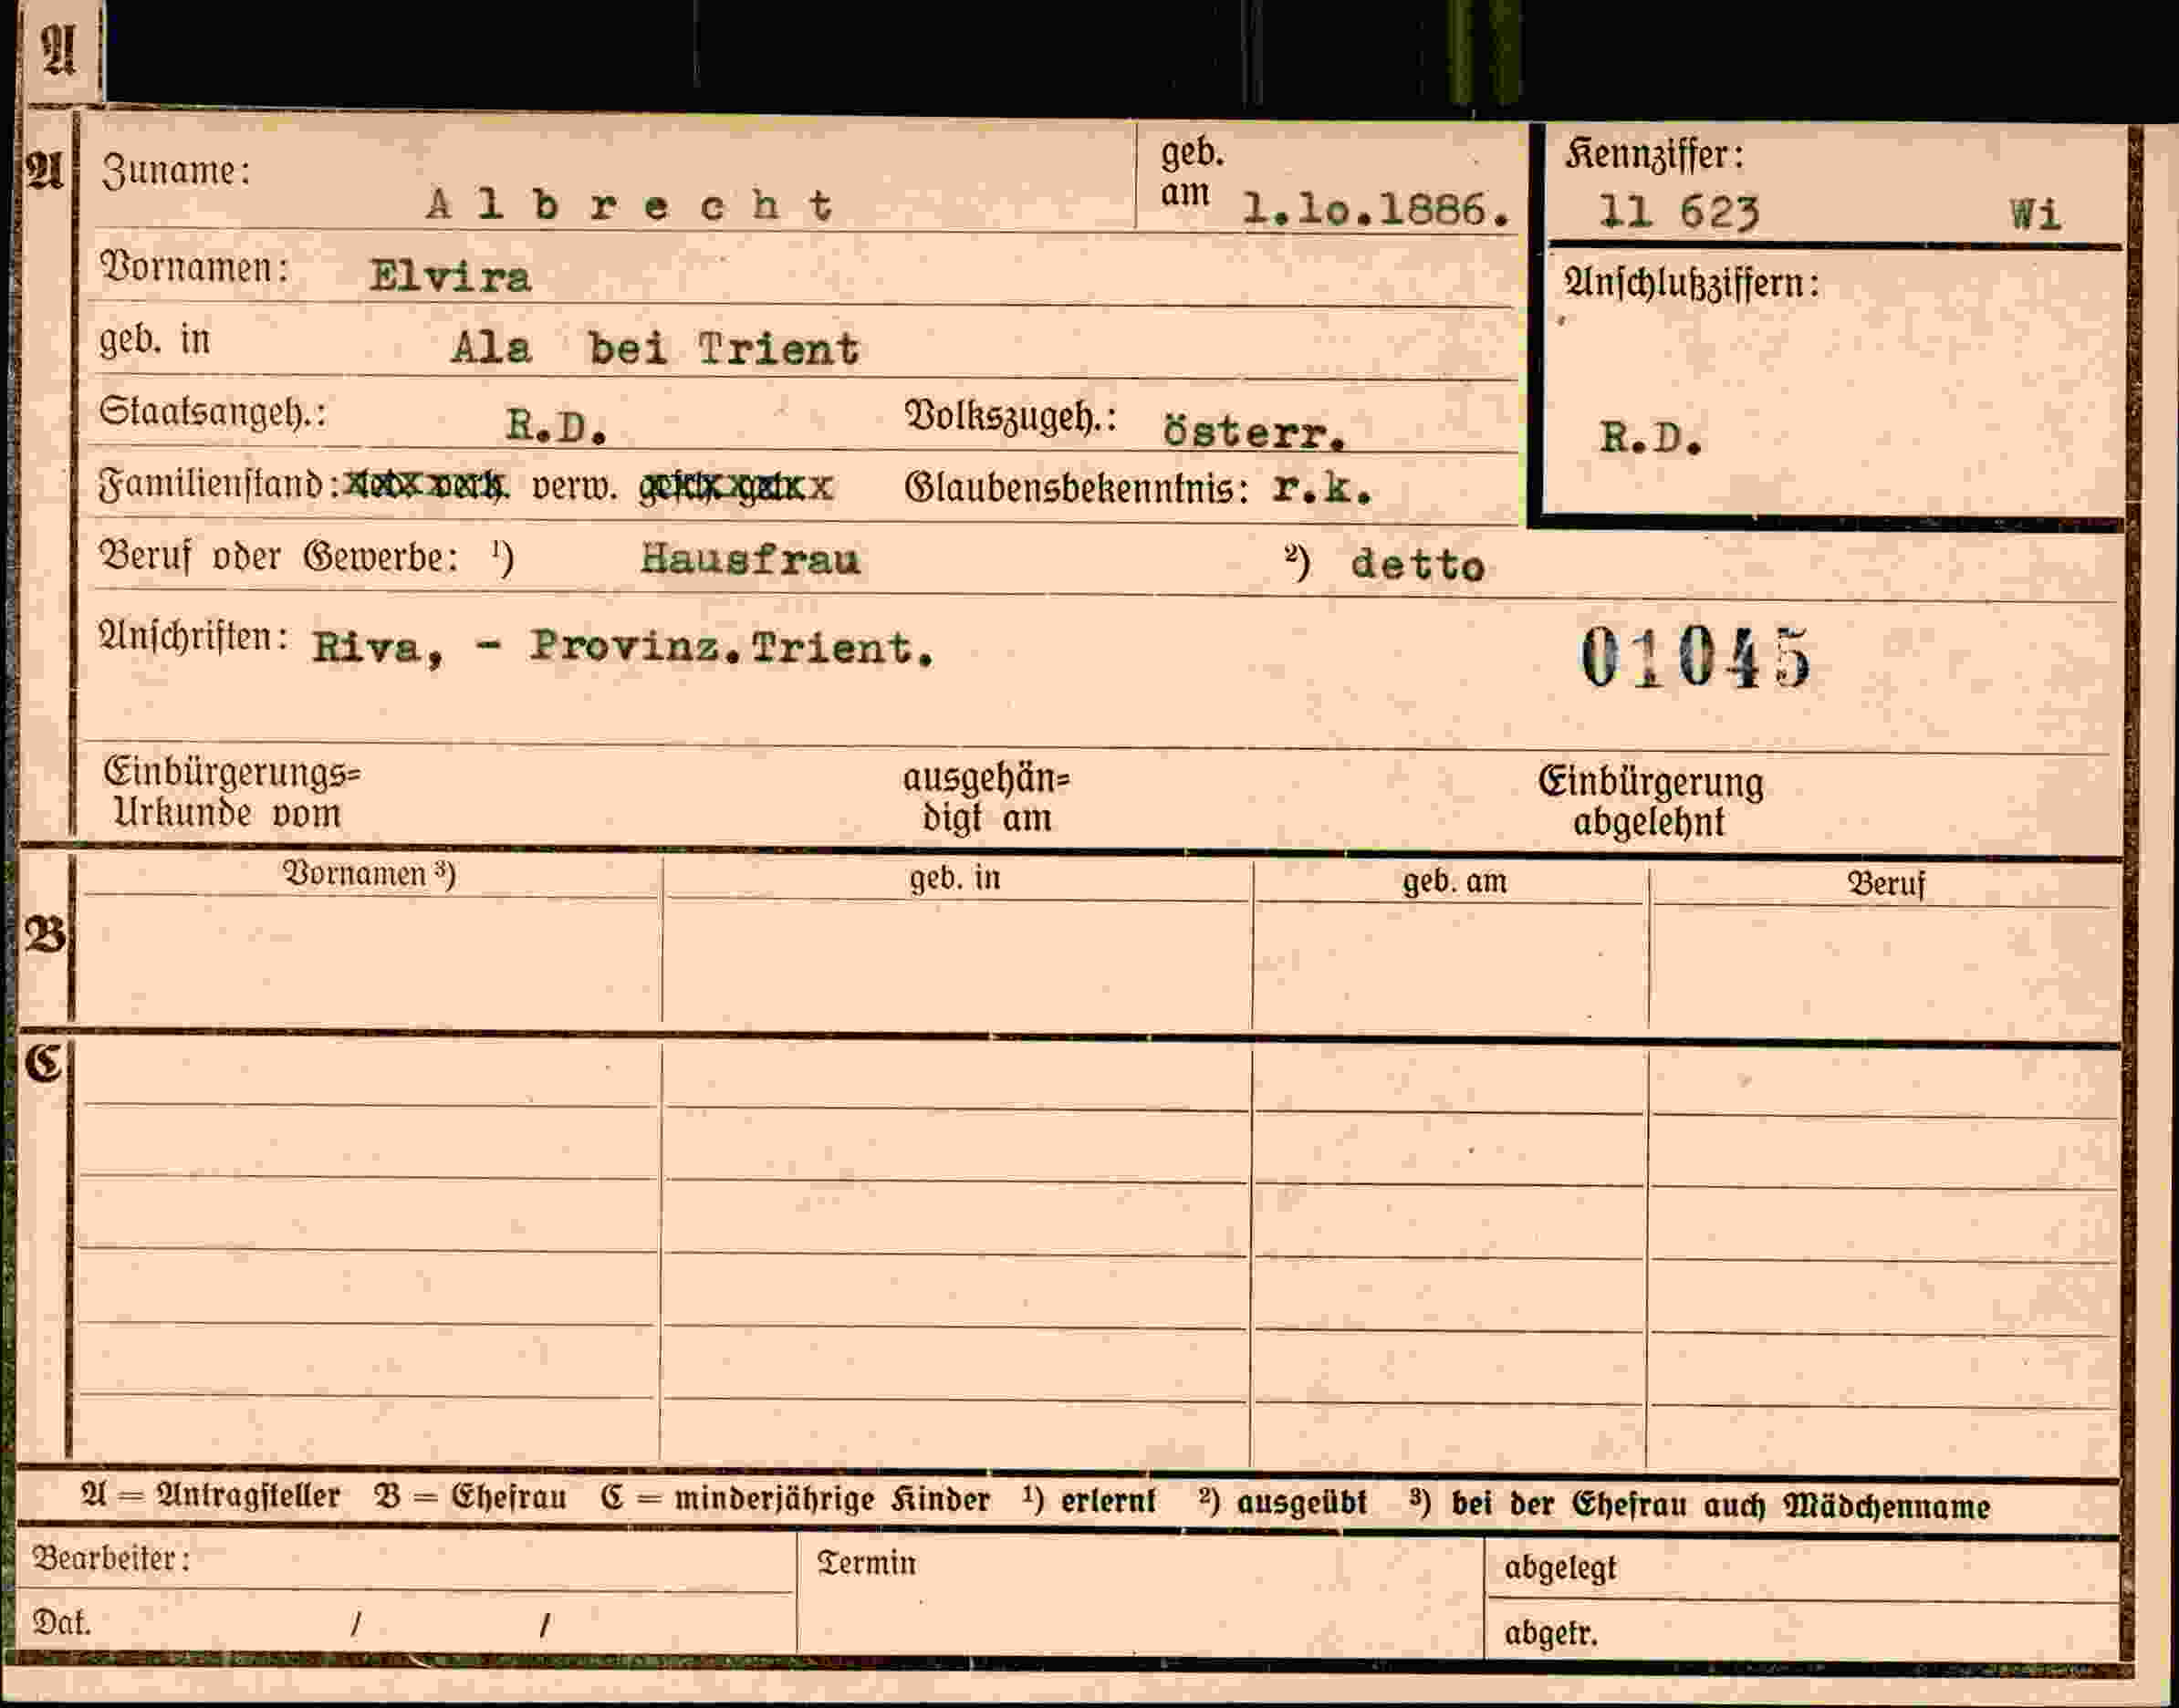 A
A Zuname: Albrecht geb. am 1.1o.1886. Kennziffer: 11 623 Wi
Vornamen: Elvira Anschlußziffern:
geb. in Ala bei Trient
Staatsangeh.: R.D. Volkszugeh.: österr. R.D.
Familienstand: verw. Glaubensbekenntnis: r.k.
Beruf oder Gewerbe: ¹) Hausfrau ²) detto
Anschriften: Riva, - Provinz.Trient. 01045
Einbürgerungs= ausgehän= Einbürgerung
Urkunde vom digt am abgelehnt
Vornamen ³) geb. in geb. am Beruf
B
C
A = Antragsteller B = Ehefrau C = minderjährige Kinder ¹) erlernt ²) ausgeübt ³) bei der Ehefrau auch Mädchenname
Bearbeiter: Termin abgelegt
Dat. / / abgetr.